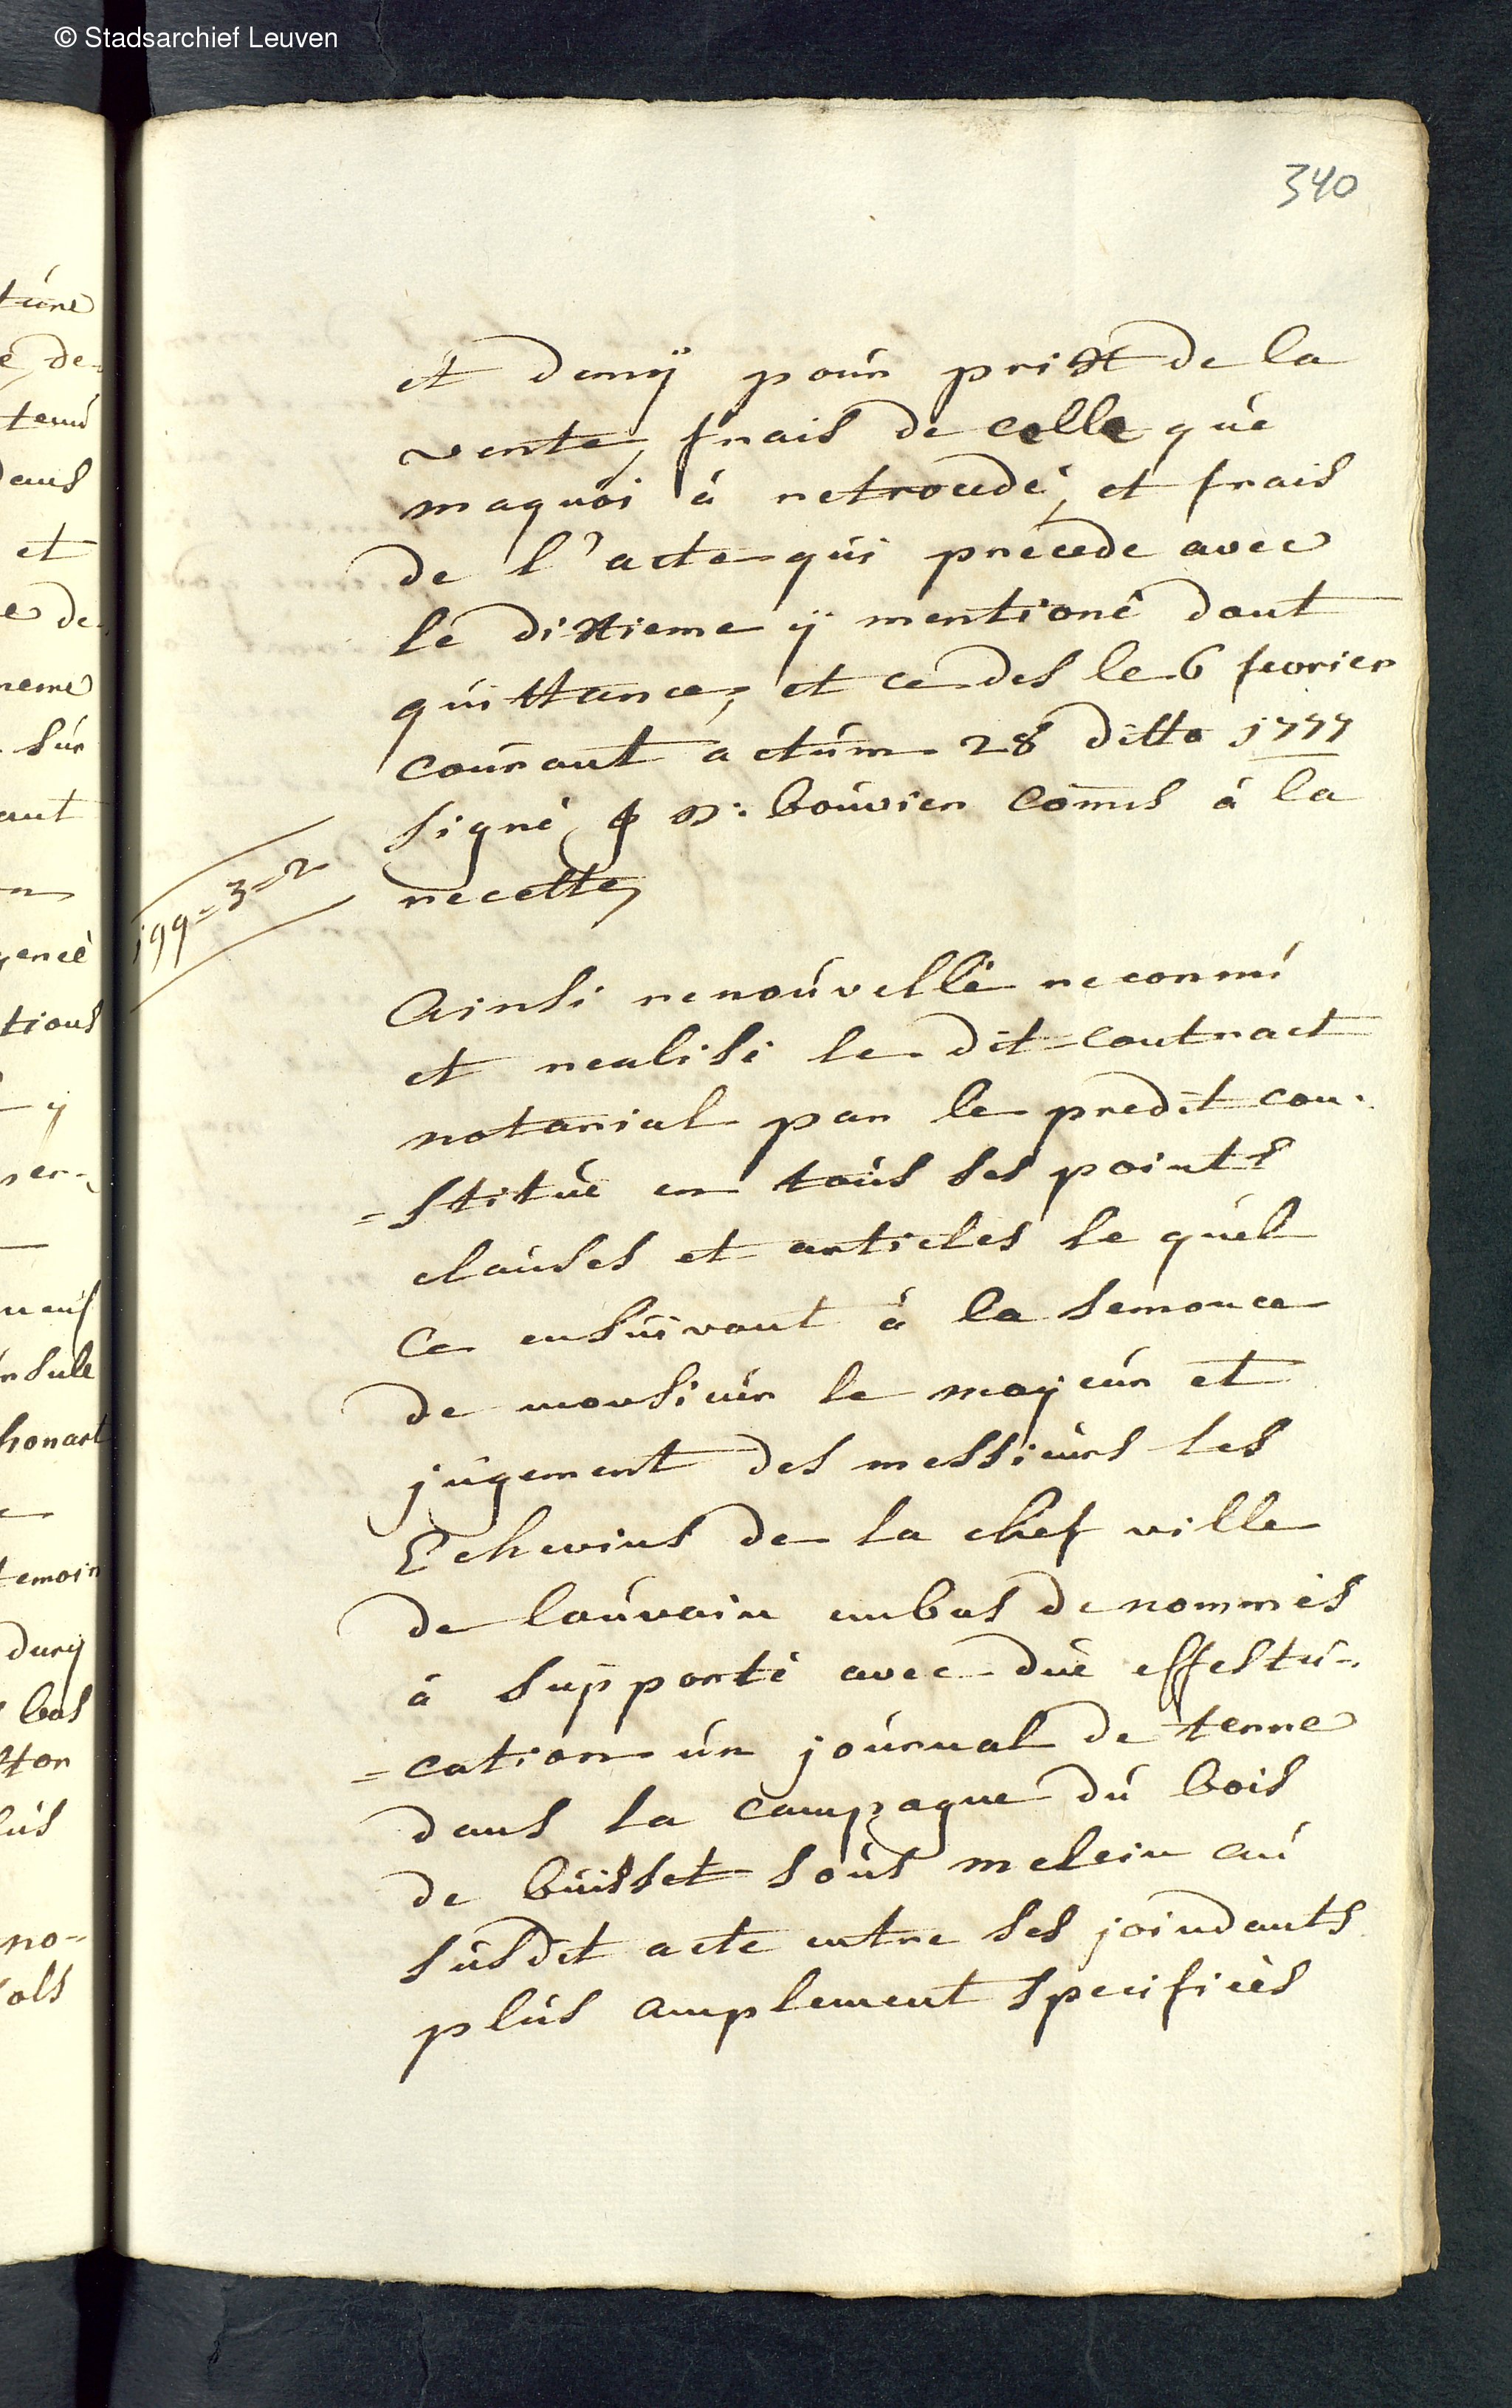 © Stadsarchief Leuven
340
et demÿ pour prix de la
vente, frais de celle que
maquoi à retroudé, et frais
de l'acte qui précede avec
le dixieme ÿ mentioné dont
quittance, et ce des le 6 fevrier
courant actum 28 ditto 1777
signé, D: bouvier Coms à la
recette,
199=3=2
Ainsi renouvellé reconnu
et realisé le dit contract
notarial par le predit con-
=stitué en tous ses points
clauses et articles le quel
Ce ensuivant à la semonce
de monsieur le mayeur et
jugement des messieurs les
Echevins de la chef ville
de louvain embas denommés
à supporté avec due effestu-
=cation un journal de terre
dans la campagne du bois
de buisset sous melein au
susdit acte entre ses joindants
plus amplement specifiées